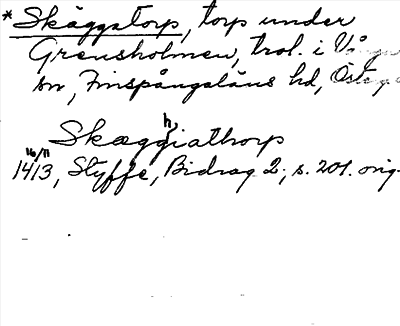 * Skäggstorp, torp under
Grensholmen, trol. i Vånga
sn, Finspångaläns hd, Österg
Skægghiathorp
16/11 1413, Styffe, Bidrag 2, s. 201. orig.